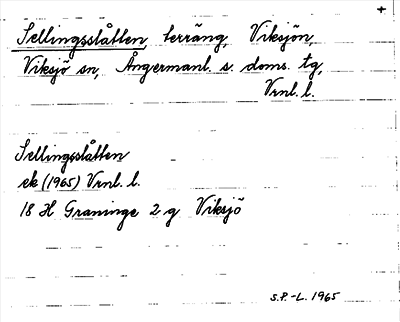 +
Sellingsslåtten, terräng, Viksjön,
Viksjö sn, Ångermanl. s. doms. tg,
Vrnl. l.
Sellingsslåtten
ek (1965) Vrnl. l.
18 H Graninge 2 g Viksjö
S.P.-L. 1965